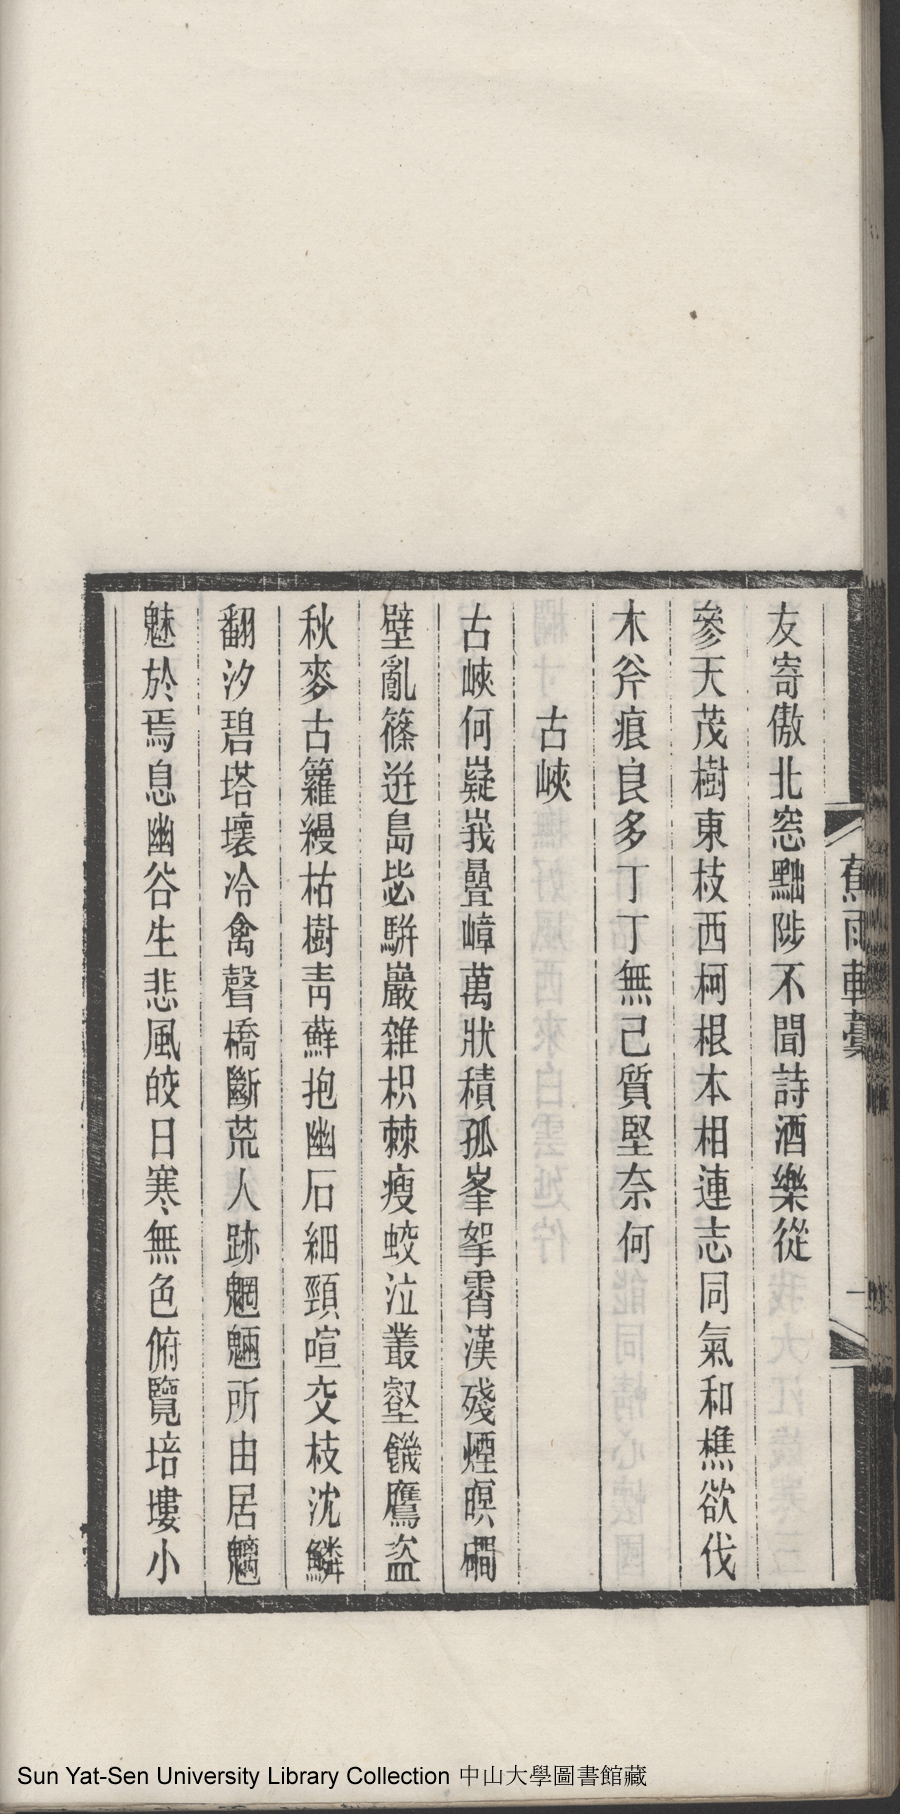 蕉雨軒藁
一
友寄傲北窓黜陟不聞詩酒樂從
參天茂樹東枝西柯根本相連志同氣和樵欲伐
木斧痕良多丁丁無已質堅奈何
古峽
古峽何嶷峩疊嶂萬狀積孤峯挐霄漢殘煙暝磵
壁亂篠迸島毖騈巖雜枳棘瘦蛟泣叢壑饑鷹盜
秋麥古籮縵枯樹青蘚抱幽石細頸喧交枝沈鱗
翻汐碧塔壞冷禽聲橋斷荒人跡魍魎所由居魑
魅於焉息幽谷生悲風皎日寒無色俯覽培塿小
Sun Yat-Sen University Library Collection 中山大學圖書館藏